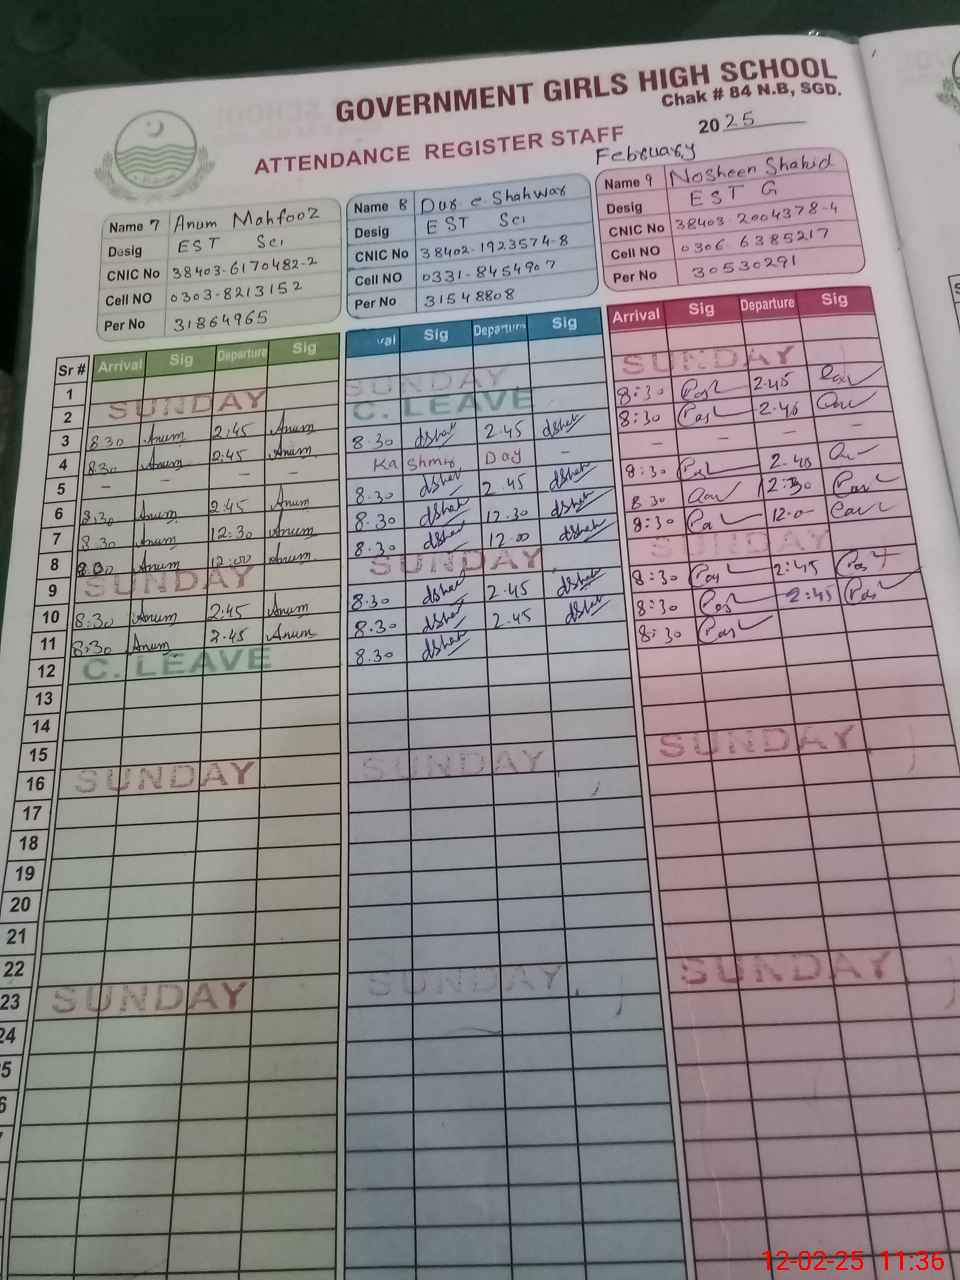 GOVERNMENT GIRLS HIGH SCHOOL
Chak # 84 N.B, SGD.
ATTENDANCE REGISTER STAFF
2025
February
Name 7 Anum Mahfooz
Desig EST Sci
CNIC No 38403-6170482-2
Cell NO 0303-8213152
Per No 31864965
Name 8 Dur e Shahwar
Desig EST Sci
CNIC No 38402-1923574-8
Cell NO 0331-8454907
Per No 31548808
Name 9 Nosheen Shahid
Desig EST G
CNIC No 38403-2004378-4
Cell NO 0306 6385217
Per No 30530291
Sr # Arrival Sig Departure Sig val Sig Departure Sig Arrival Sig Departure Sig
1 SUNDAY
2 SUNDAY SUNDAY 8:30 2.45
C. LEAVE 8:30 2.45
3 8.30 Anum 2:45 Anum 8.30 dshah 2.45 dshah - - - -
4 8.30 Anum 2:45 Anum Kashmir Day - 8:30 2.45
5 - - - - 8.30 dshah 2.45 dshah 8.30 12:30
6 8.30 Anum 2:45 Anum 8.30 dshah 12.30 dshah 8:30 12.0
7 8.30 Anum 12:30 Anum 8.30 dshah 12.00 dshah SUNDAY
8 8.30 Anum 12:00 Anum SUNDAY 8:30 2:45
9 SUNDAY 8.30 dshah 2.45 dshah 8:30 2:45
10 8:30 Anum 2:45 Anum 8.30 dshah 2.45 dshah 8:30
11 8:30 Anum 2.45 Anum 8.30 dshah
12 C. LEAVE
13
14
15 SUNDAY
16 SUNDAY SUNDAY
17
18
19
20
21
22 SUNDAY
23 SUNDAY SUNDAY
24
5
6
12-02-25 11:36